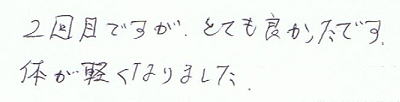 2回目ですが、とても良かったです。
体が軽くなりました。